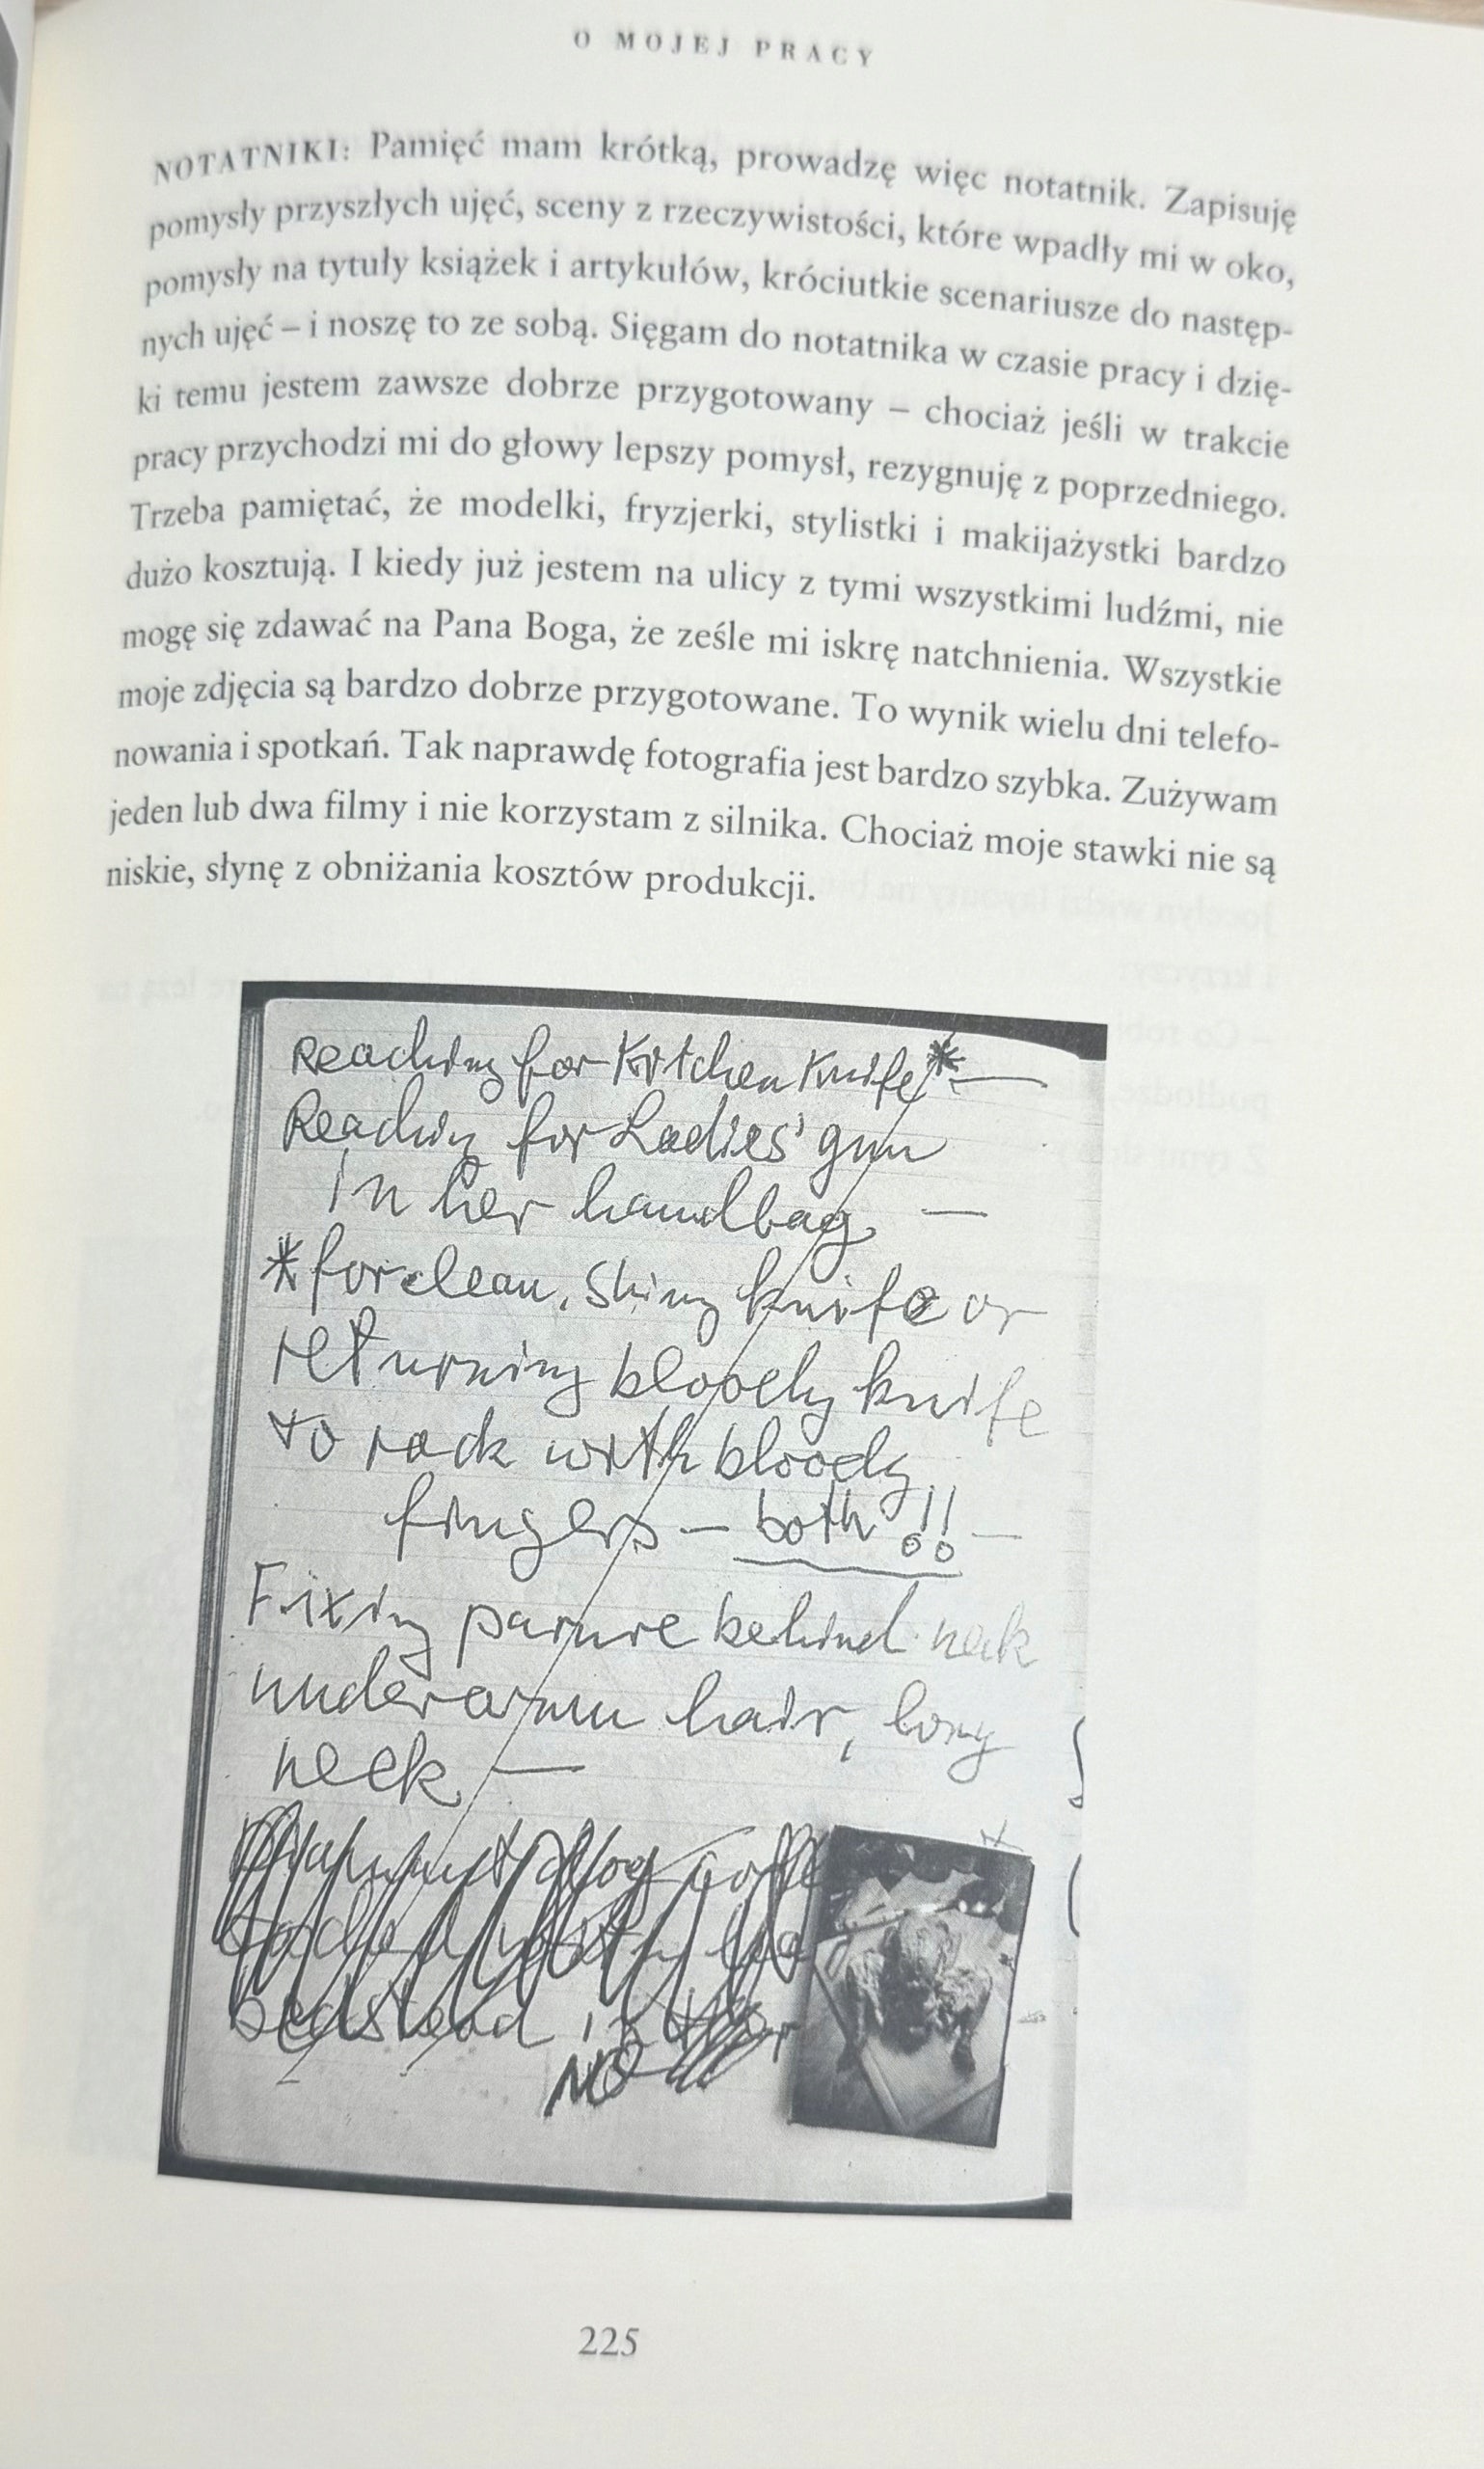 O MOJEJ PRACY
NOTATNIKI: Pamięć mam krótką, prowadzę więc notatnik. Zapisuję
pomysły przyszłych ujęć, sceny z rzeczywistości, które wpadły mi w oko,
pomysły na tytuły książek i artykułów, króciutkie scenariusze do następ-
nych ujęć – i noszę to ze sobą. Sięgam do notatnika w czasie pracy i dzię-
ki temu jestem zawsze dobrze przygotowany – chociaż jeśli w trakcie
pracy przychodzi mi do głowy lepszy pomysł, rezygnuję z poprzedniego.
Trzeba pamiętać, że modelki, fryzjerki, stylistki i makijażystki bardzo
dużo kosztują. I kiedy już jestem na ulicy z tymi wszystkimi ludźmi, nie
mogę się zdawać na Pana Boga, że ześle mi iskrę natchnienia. Wszystkie
moje zdjęcia są bardzo dobrze przygotowane. To wynik wielu dni telefo-
nowania i spotkań. Tak naprawdę fotografia jest bardzo szybka. Zużywam
jeden lub dwa filmy i nie korzystam z silnika. Chociaż moje stawki nie są
niskie, słynę z obniżania kosztów produkcji.
Reaching for Kitchen Knife* —
Reaching for Ladies' gun
in her handbag. —
* for clean, shiny knife or
returning bloody knife
to rack with bloody
fingers — both!! —
Fixing parure behind neck
underarm hair, long
neck —
bedstead
NO
225